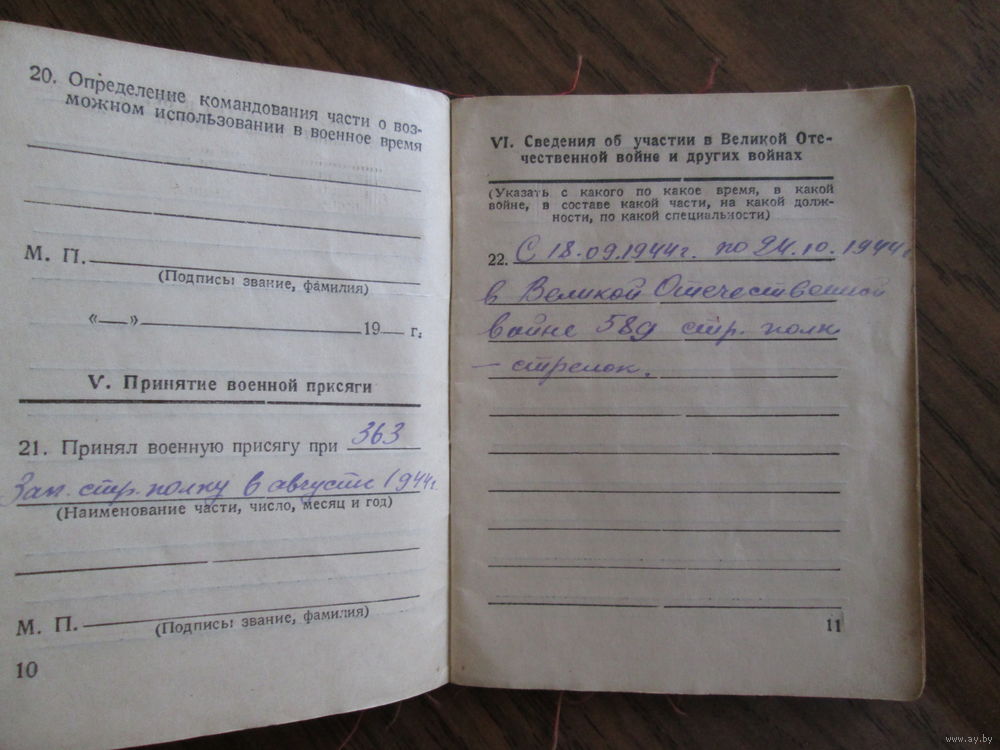 20. Определение командования части о воз-
можном использовании в военное время
М. П.
(Подпись: звание, фамилия)
«__»__19__ г.
V. Принятие военной присяги
21. Принял военную присягу при 363
Зап. стр. полку в августе 1944г.
(Наименование части, число, месяц и год)
М. П.
(Подпись: звание, фамилия)
10
VI. Сведения об участии в Великой Оте-
чественной войне и других войнах
(Указать с какого по какое время, в какой
войне, в составе какой части, на какой долж-
ности, по какой специальности)
22. С 18.09.1944г. по 24.10.1944г
в Великой Отечественной
войне 589 стр. полк
– стрелок.
11
www.ay.by